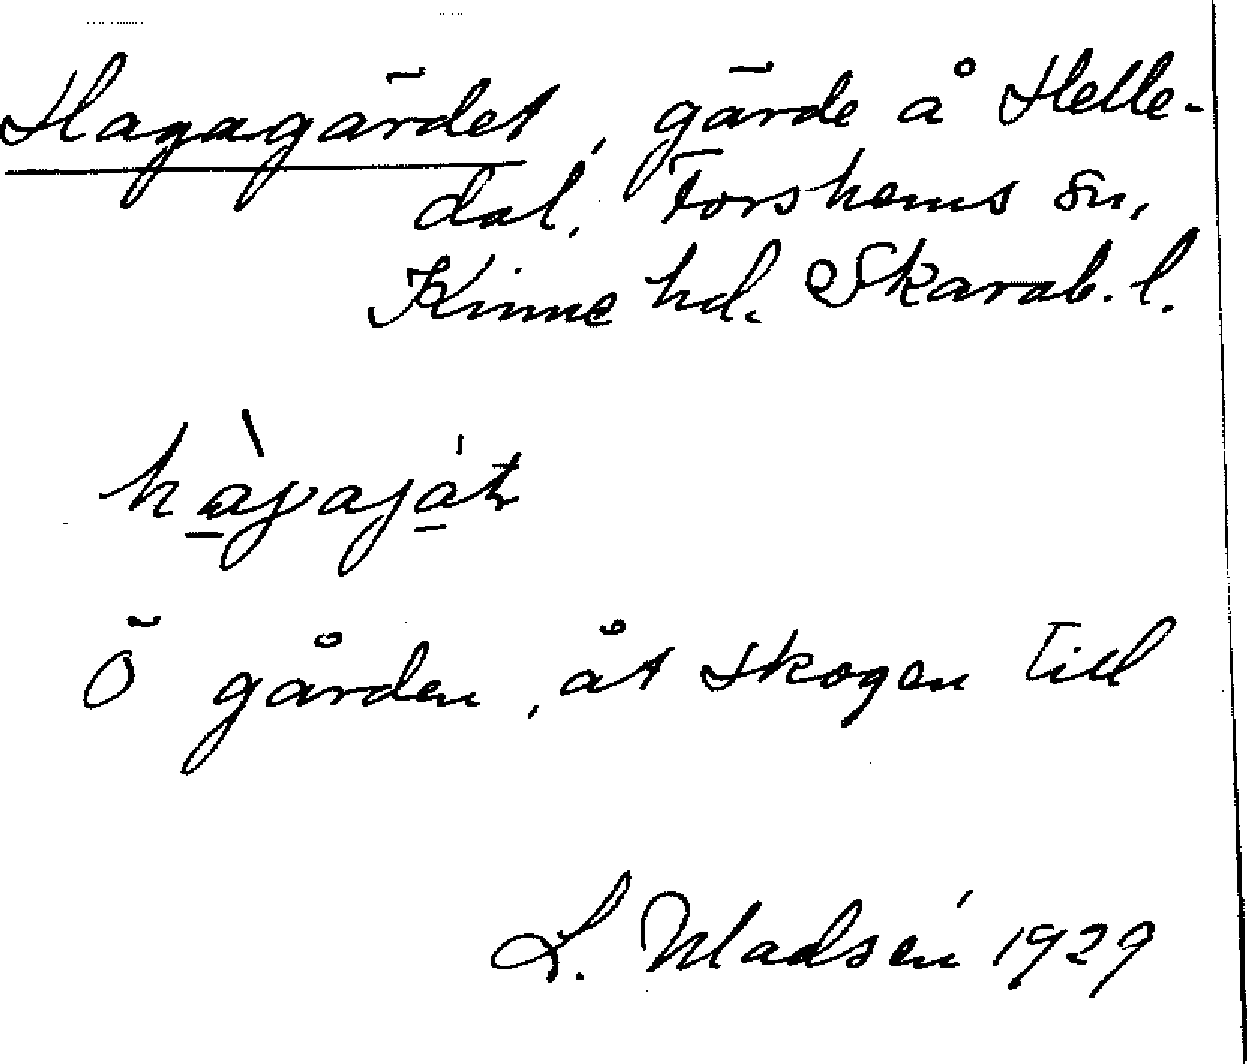 Hagagärdet, gärde å Helle-
dal, Forshems sn,
Kinne hd. Skarab. l.
hàgajat
Ö gården, åt skogen till
L. Madsén 1929